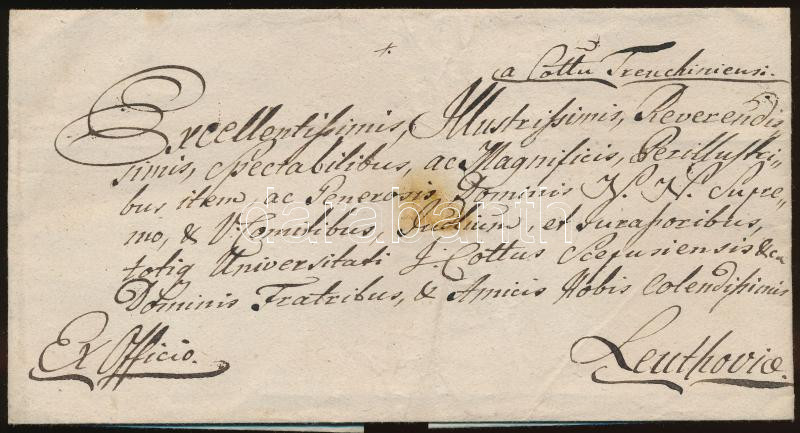 a Cottu Trenchiniensi.
Excellentissimis, Illustrissimis, Reverendis
simis, Spectabilibus, ac Magnificis, Perillustri-
bus item, ac Generosis Dominis N. N. Supre-
mo, & V: Comitibus, Judlium, et Jurassoribus,
totiq Universitati J. Cottus Scepusiensis &ca
Dominis Fratribus, & Amicis Nobis Colendissimis
Ex Officio.
Leuthoviæ.
darabanth